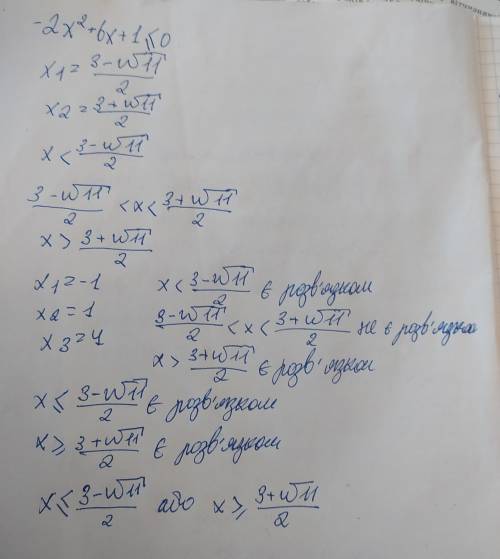 -2x²+6x+1≤0
x₁ = (3-√11)/2
x₂ = (3+√11)/2
x < (3-√11)/2
(3-√11)/2 < x < (3+√11)/2
x > (3+√11)/2
x₁ = -1 x < (3-√11)/2 є розв'язком
x₂ = 1 (3-√11)/2 < x < (3+√11)/2 не є розв'язком
x₃ = 4 x > (3+√11)/2 є розв'язком
x ≤ (3-√11)/2 є розв'язком
x ≥ (3+√11)/2 є розв'язком
x ≤ (3-√11)/2 або x ≥ (3+√11)/2